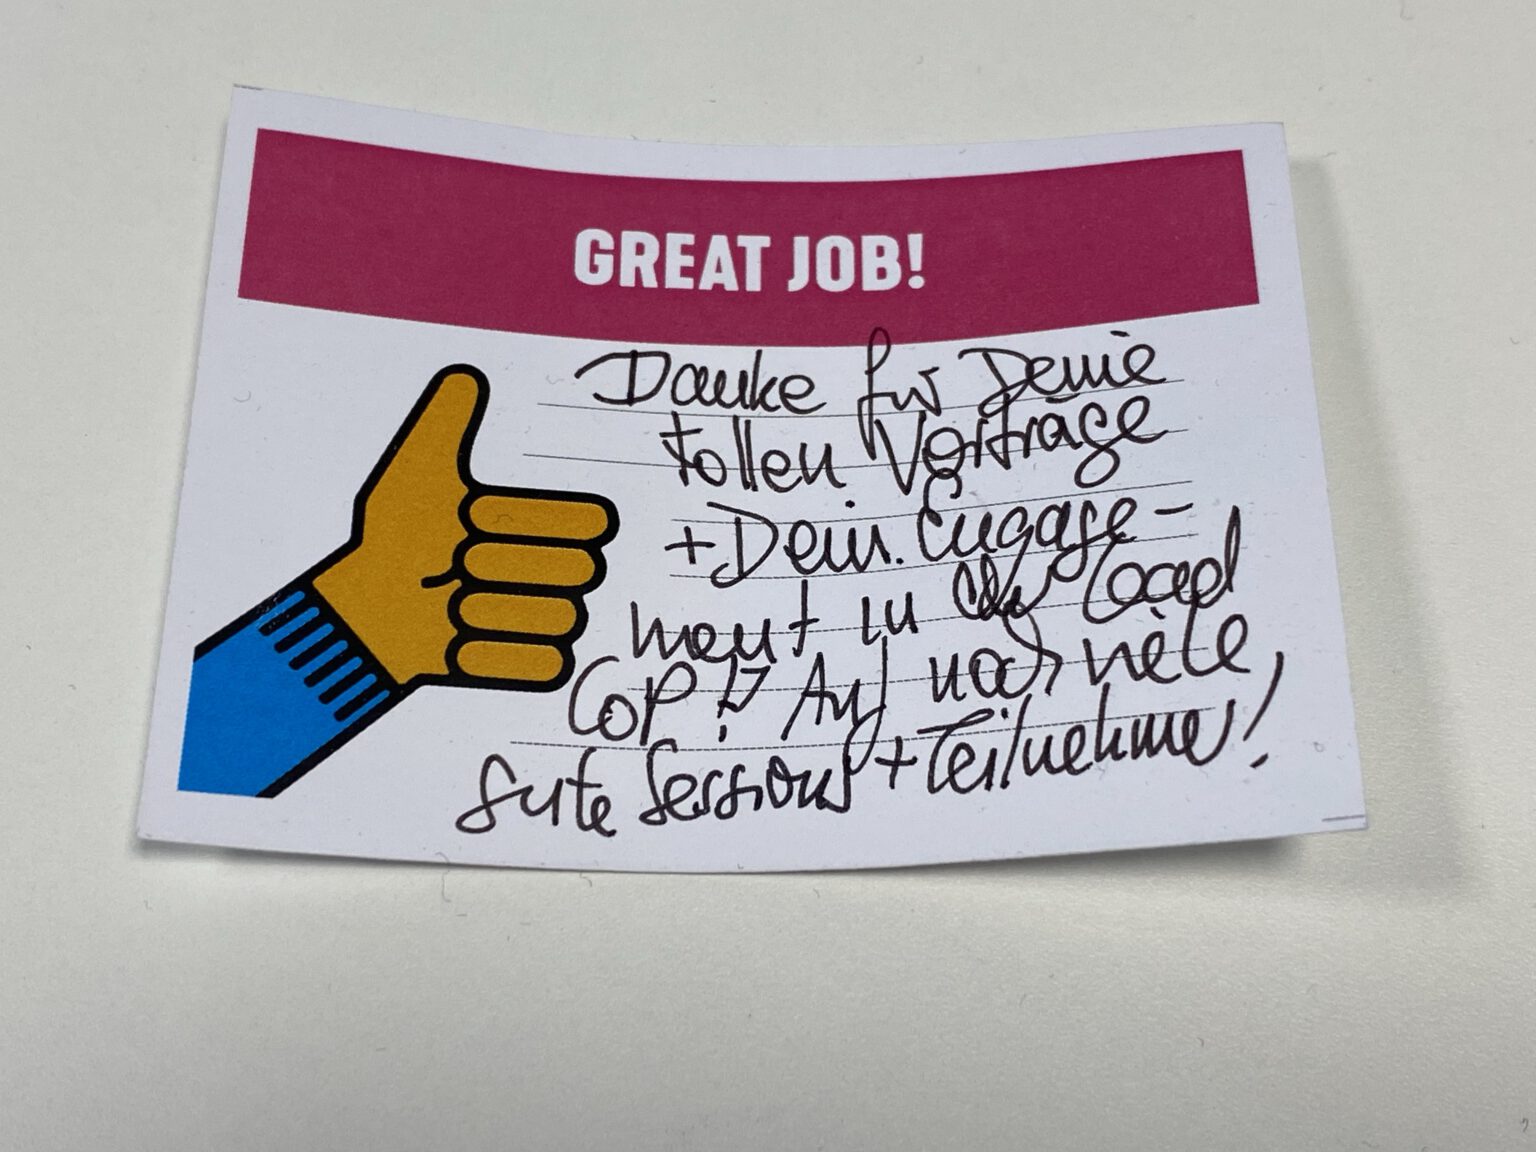 GREAT JOB!
Danke für Deine
tollen Vorträge
+ Dein Engage-
ment in der Load
CoP!! Auf noch viele,
gute Sessions + Teilnehmer!